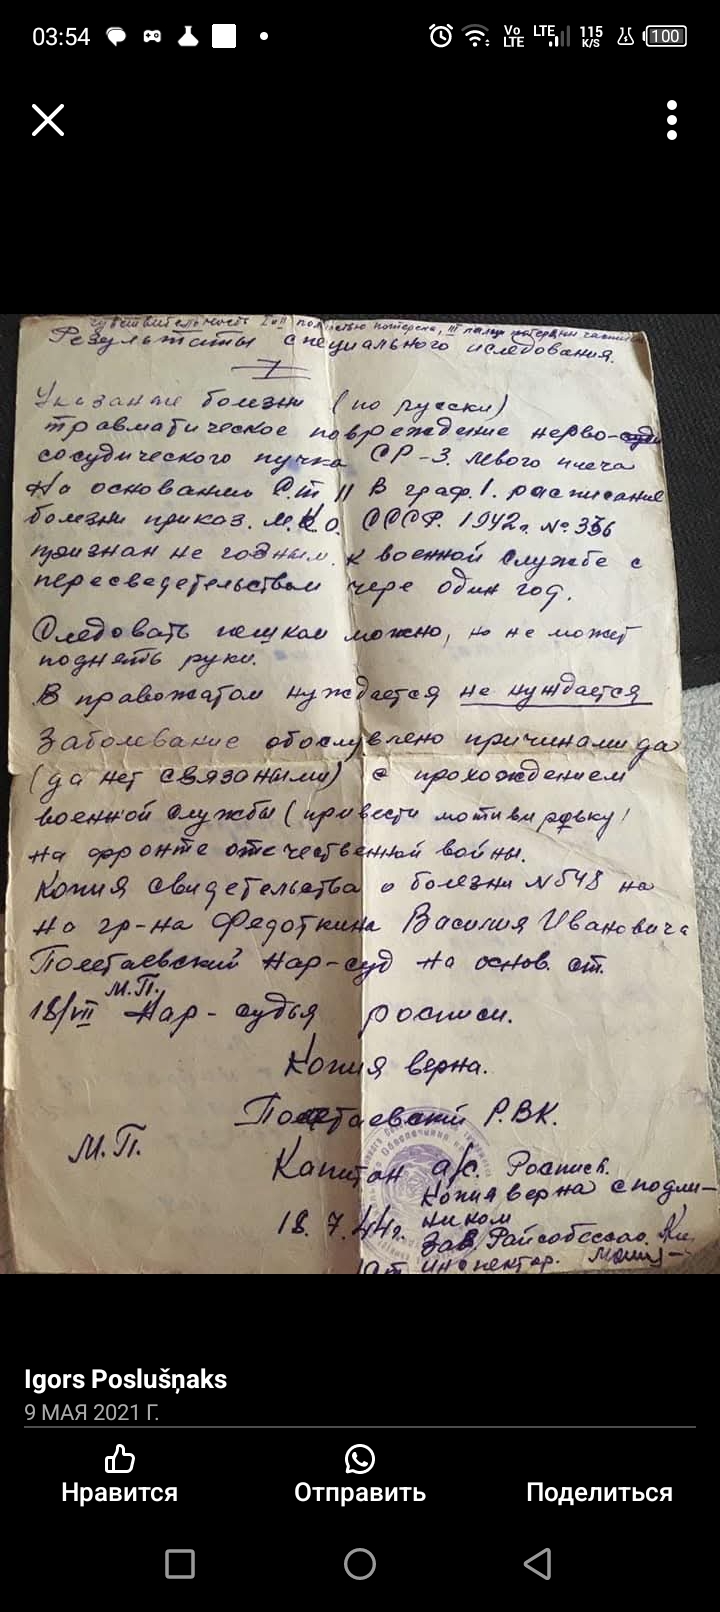 03:54
Vo LTE
LTE
115 K/S
100
чувствительность I и II полностью потеряна, III пальца потеряны частично
Результаты специального иследования.
Указание болезни (по русски)
травматическое повреждение нерво-
сосудического пучка СР-3. левого плеча
На основании Ст 11 В граф. 1. расписание
болезни приказ. Н.К.О. СССР. 1942г. № 336
признан не годным. к военной службе с
пересведетельством чере один год.
Следовать пешком можно, но не может
поднять руки.
В правожатом нуждается не нуждается
Заболевание обослувлено причинами да
(да нет связаными) с прохождением
военной службы (привести мотивировку)
на фронте отечественной войны.
Копия свидетельства о болезни №548 на
на гр-на Федоткина Василия Ивановича
Полтаевский Нар-суд на основ. ст.
М.П.
18/VII Нар-судья росписи.
Копия верна.
Полтаевский Р.В.К.
М.П.
Капитан а/с. Роспись.
Копия верна с подли-
ником
18. 7. 44г.
Зав. Райсобесом.
инспектор.
Igors Poslušņaks
9 МАЯ 2021 Г.
Нравится
Отправить
Поделиться